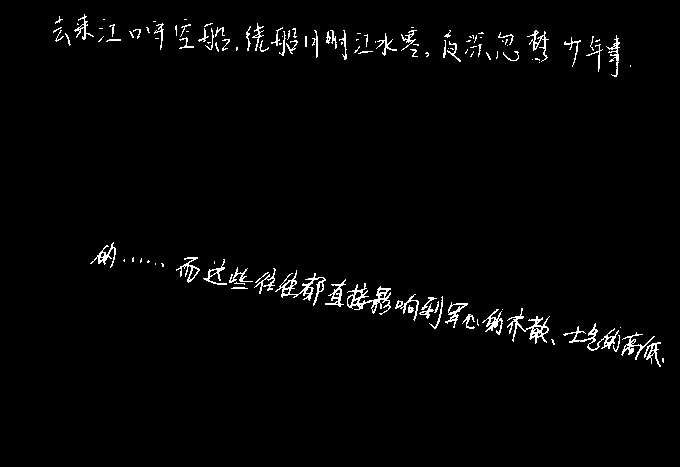 去来江口守空船,绕船月明江水寒,夜深忽梦少年事.
的……而这些往往都直接影响到军心的散、士气的高低.